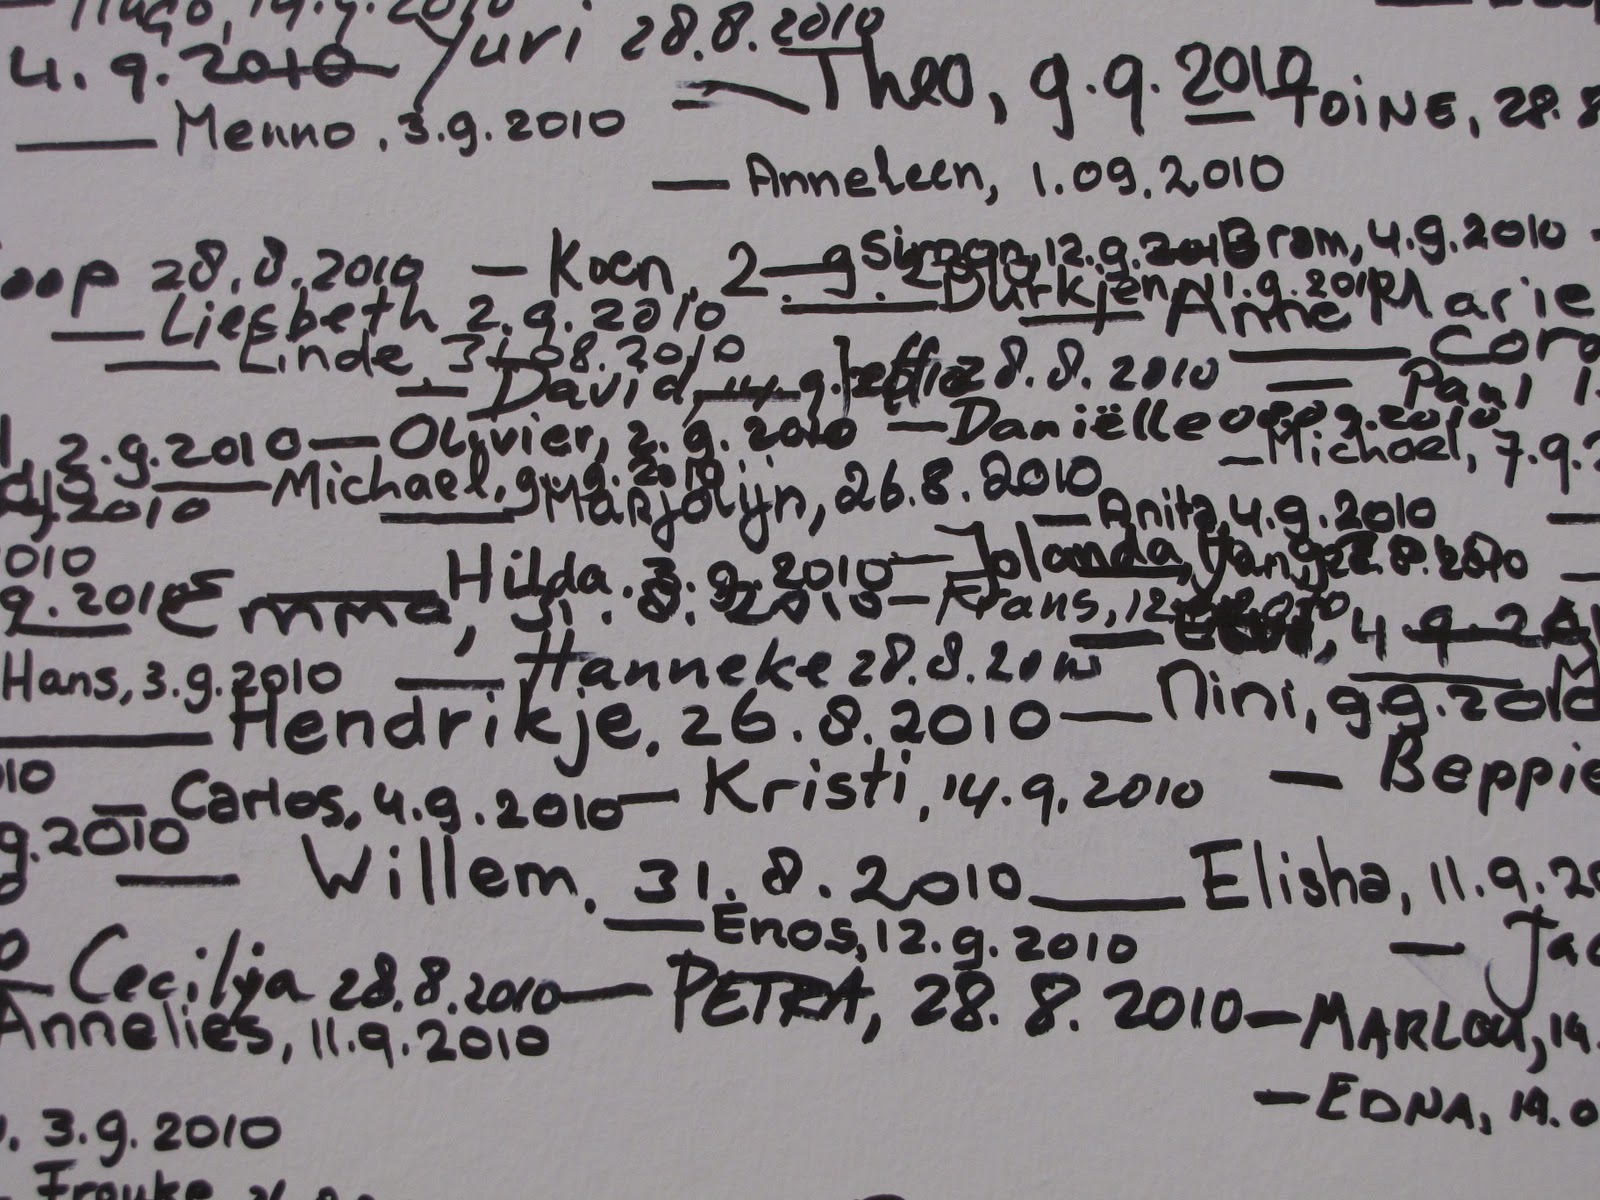 Hugo, 14.9.2010
4.9.2010 Yuri 28.8.2010
— Theo, 9.9.2010 TOINE, 28.8
— Menno, 3.9.2010
— Anneleen, 1.09.2010
oop 28.8.2010 — Koen, 2.9.2 Simon, 12.9.2010 Bram, 4.9.2010
— Durkjen, 11.9.2010
— Liesbeth 2.9.2010 — Anne Marie
— Linde 31.08.2010 — Cora
— David, 14.9. 28.8.2010 — Paul 1.
2.9.2010 — Olivier, 2.9.2010 — Daniëlle
— Michael, 7.9.2
2010 — Michael, 9.9.2010
— Marjolijn, 26.8.2010
— Anita, 4.9.2010
010 Hilda, 3.9.2010 — Jolanda, 28.8.2010
9.2010 Emma, 31.8.2010 — Frans, 12
, 4.9.20
Hans, 3.9.2010 — Hanneke 28.8.2010
— Hendrikje, 26.8.2010 — Nini, 9.9.2010
010 — Beppie
— Carlos, 4.9.2010 — Kristi, 14.9.2010
9.2010
— Willem, 31.8.2010 — Elisha, 11.9.20
— Enos, 12.9.2010 — Jac
— Cecilja 28.8.2010 — PETRA, 28.8.2010 — MARLOU, 14.
Annelies, 11.9.2010
— EDNA, 14.0
. 3.9.2010
Frouke